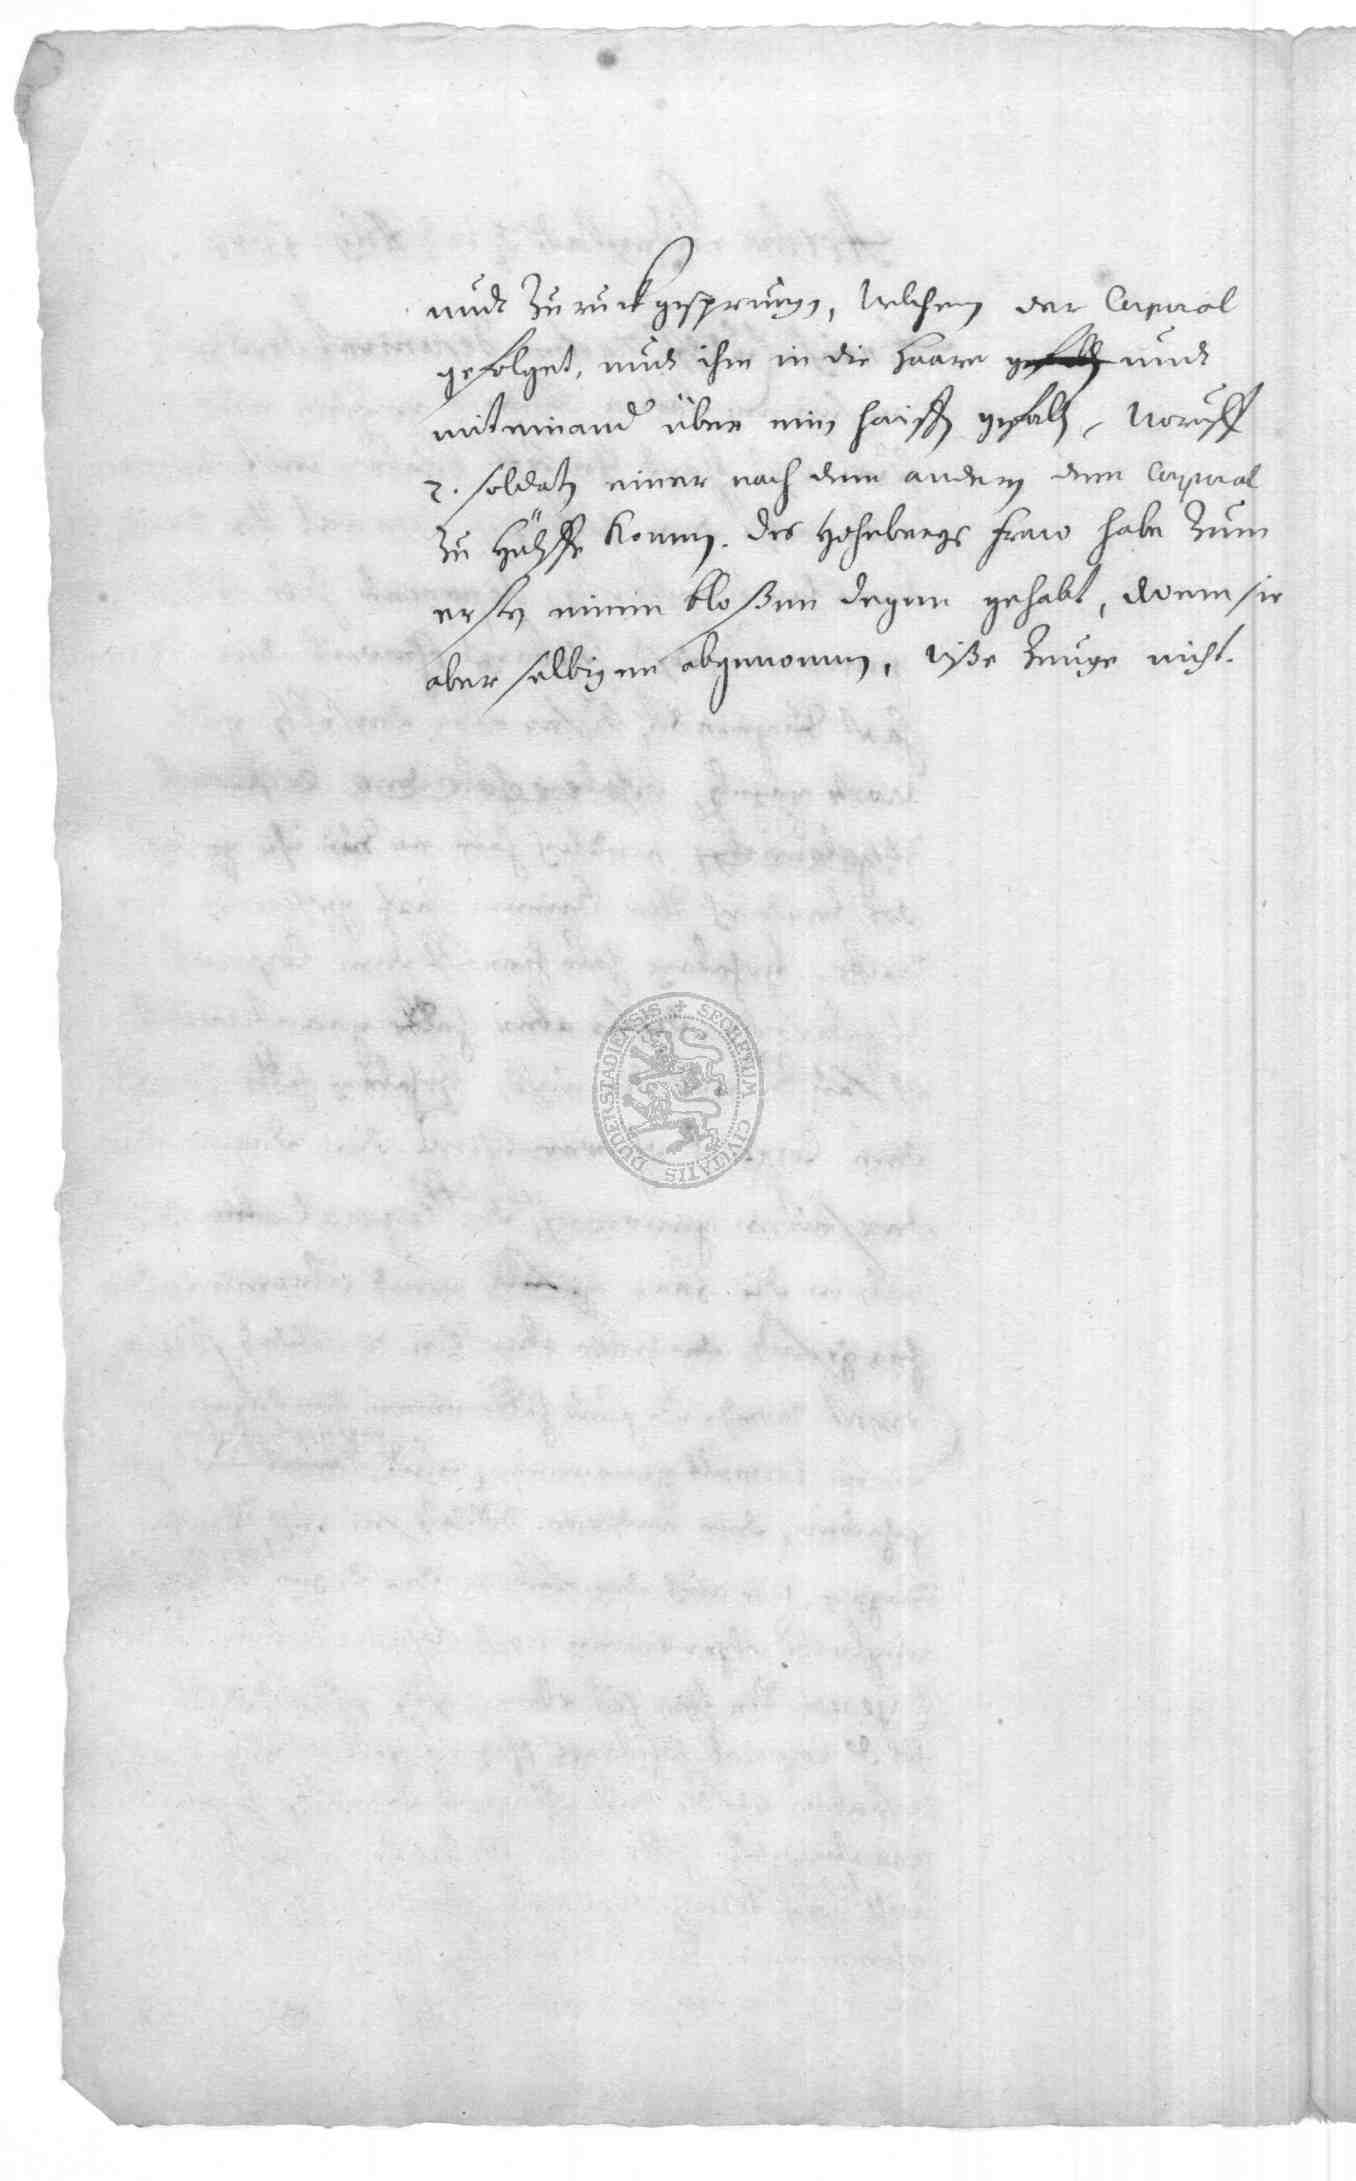 undt Zuruckgesprungen, welchem der Corporal
gefolget, undt ihm in die Haare gefallen undt
miteinand über ein hauffen gefallen, worauff
2. soldaten einer nach dem andern dem Corporal
zu Hülffe kommen. des Hohebergs fraw habe zum
ersten einen bloßen degen gehabt, wem sie
aber selbigen abgenommen, wiße Zeuge nicht.
SECRETUM CIVITATIS DUDERSTADIENSIS